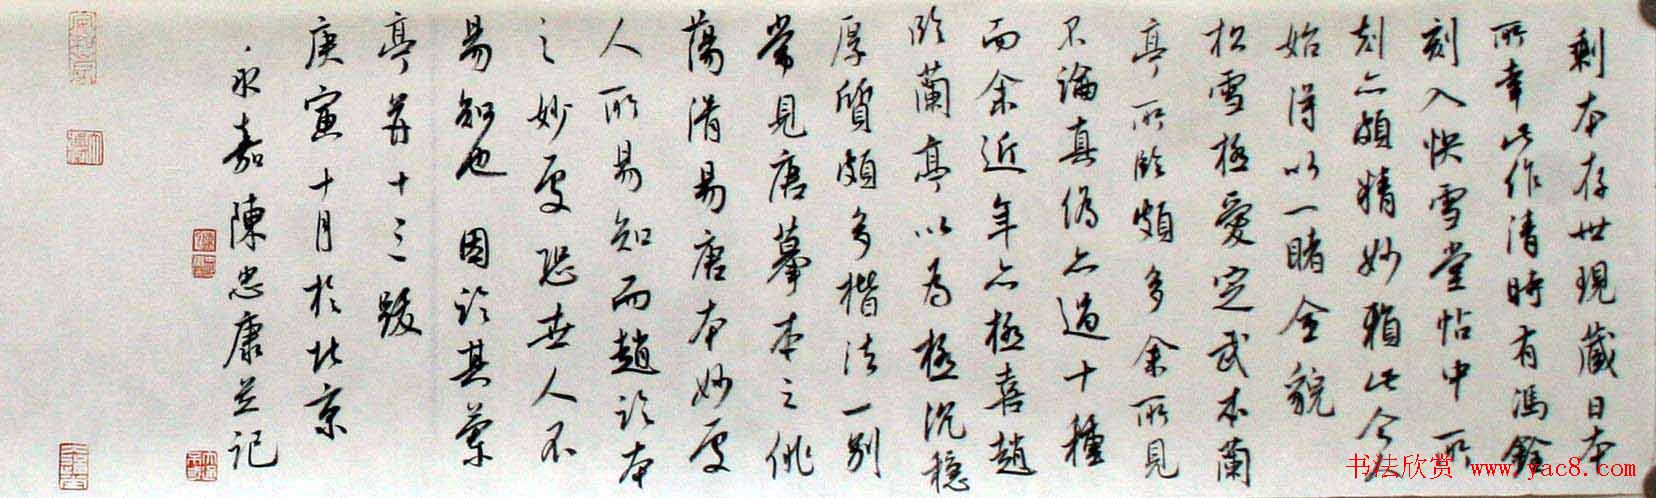 剩本存世現藏日本
所幸此作清時有馮銓
刻入快雪堂帖中所
刻亦頗精妙賴此今人
始得以一睹全貌
松雪極愛定武本蘭
亭所臨頗多余所見
不論真偽亦過十種
而余近年亦極喜趙
臨蘭亭以為極沉穩
厚質頗多楷法一別
嘗見唐摹本之佻
蕩滑易唐本妙處
人所易知而趙臨本
之妙處恐世人不
易知也因臨其蘭
亭并十三跋
庚寅十月於北京
永嘉陳忠康並記
书法欣赏 www.yac8.com